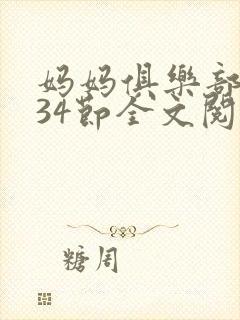 妈妈俱樂部
34節全文閱
糖周